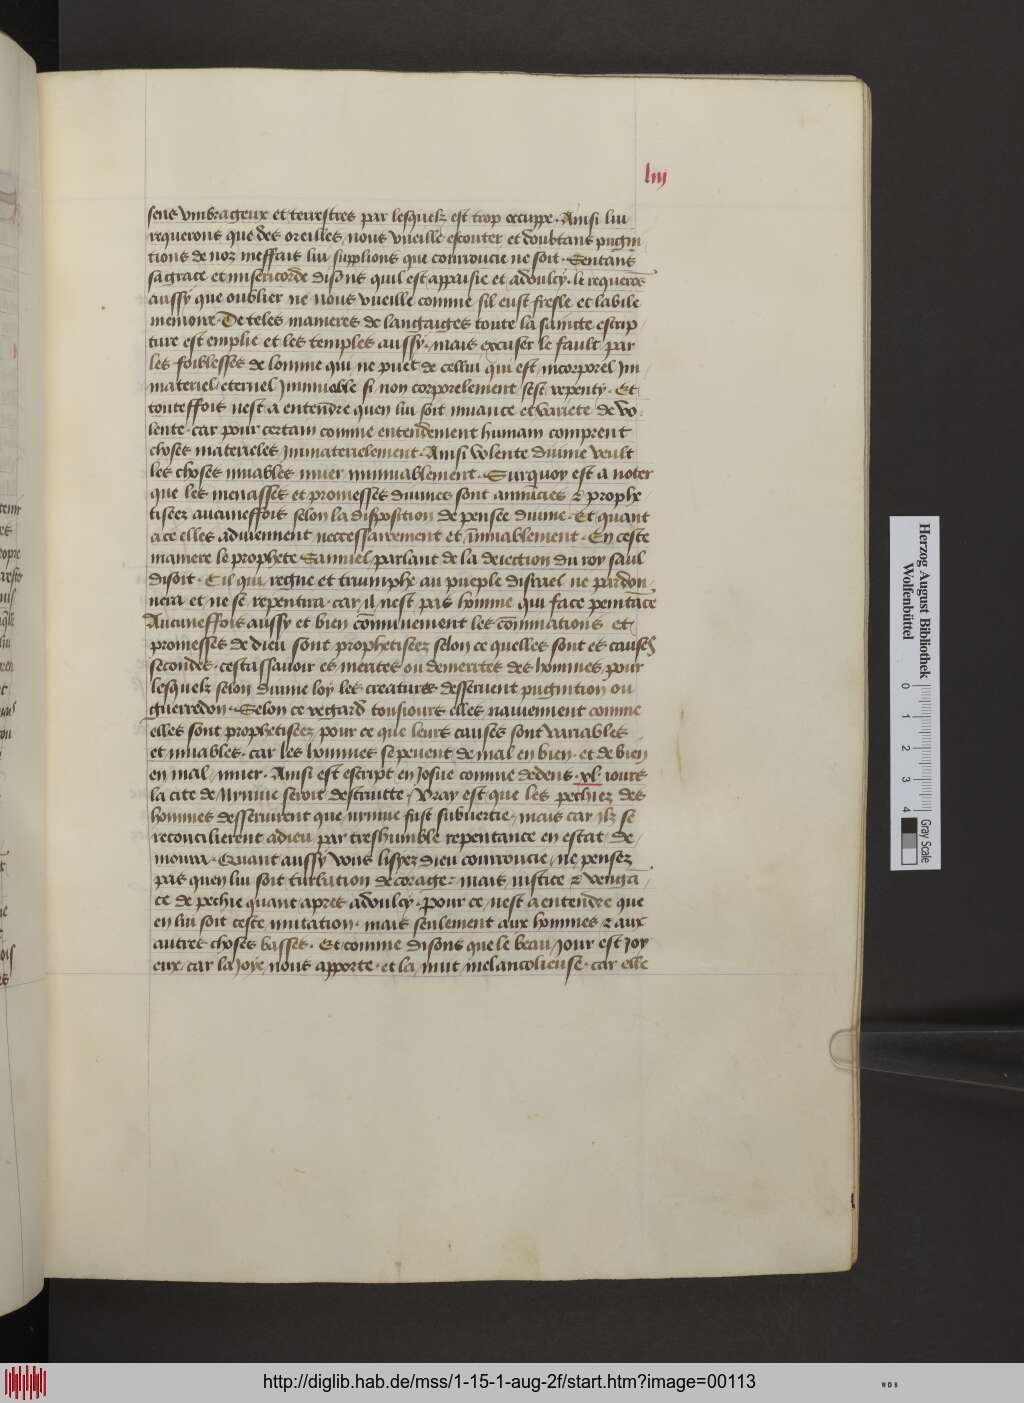 liiij
sens vmbrageux et terrestres par lesquelz est trop occuppe. Ainsi lui
requerons que des oreilles nous vueille escouter et doubtans pugni
tions de noz meffais lui supplions que courroucie ne soit. Sentans
sa grace et misericorde disons quil est appaisie et adoulcy. le requerōs
aussy que oublier ne nous vueille comme sil eust fresle et labile
memoire. De teles manieres de langaiges toute la saincte escrip/
ture est emplie et les temples aussy. mais excuser le fault par
les foiblesses de lomme qui ne puet de cellui qui est incorporel Im
materiel/eternel Jmmuable si non corporelement sest repenty. Et
touteffois nest a entendre quen lui soit muance et variete de vo/
lente. car pour certain comme entendement humain comprent
choses materieles Jmmaterielement. Ainsi volente diuine veult
les choses muables muer immuablement. Surquoy est a noter
que les menasses et promesses diuines sont annūciees & prophe
tisees aucuneffois selon la disposition de pensee diuine. Et quant
a ce elles aduiennent neccessairement et īmuablement. En ceste
maniere le prophete Samuel/parlant de la deiection du roy saul
disoit. Cil qui regne et triumphe au pueple disrael ne pardon
nera et ne se repentira. car il nest pas homme qui face penitāce
Aucuneffois aussy et bien cōmunement les cōminations et
promesses de dieu sont prophetisees selon ce quelles sont es causes
secondes. cestassauoir es merites ou demerites des hommes/pour
lesquelz selon diuine loy les creatures desseruent pugnition ou
guerredon. Selon ce regard tousiours elles nauiennent comme
elles sont prophetisees pour ce que leurs causes sont variables
et muables. car les hommes se peuent de mal en bien. et de bien
en mal/muer. Ainsi est escript en Josue comme dedens .xl. iours
la cite de Niniue seroit destruitte/Vray est que les pechiez des
hommes desseruirent que niniue fust subuertie/mais car ilz se
reconcilierent a dieu par treshumble repentance en estat de/
moura. Quant aussy vous lisyez dieu courroucie/ne pensez
pas quen lui soit turbation de corage: mais iustice & vengā/
ce de pechie quant apres adoulcy. pour ce/nest a entendre que
en lui soit ceste mutation. mais seulement aux hommes & aux
autres choses basses. Et comme disons que le beau/Jour est Joy
eux/car la Joye nous apporte. et la nuit melancolieuse. car elle
Herzog August Bibliothek
Wolfenbüttel
0 1 2 3 4
Gray Scale
http://diglib.hab.de/mss/1-15-1-aug-2f/start.htm?image=00113